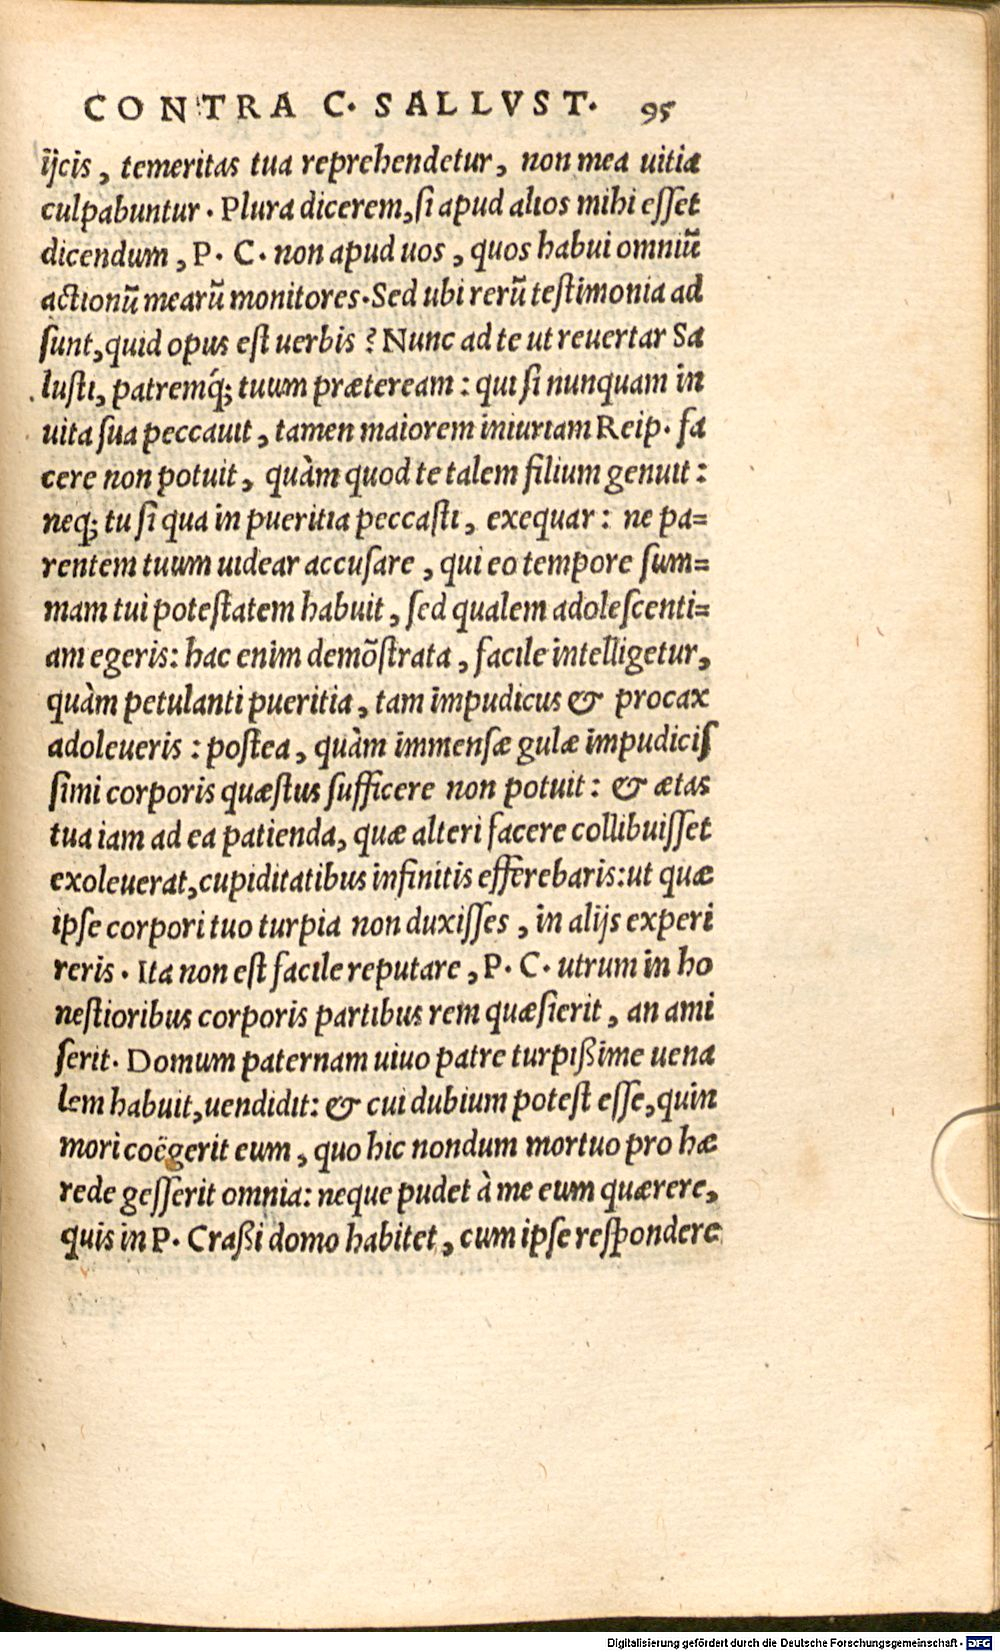 CONTRA C. SALLVST. 95
ijcis, temeritas tua reprehendetur, non mea uitia
culpabuntur. Plura dicerem, ſi apud alios mihi eſſet
dicendum, P. C. non apud uos, quos habui omniũ
actionũ mearũ monitores. Sed ubi rerũ teſtimonia ad
ſunt, quid opus eſt uerbis? Nunc ad te ut reuertar Sa
luſti, patremq́; tuum præteream: qui ſi nunquam in
uita ſua peccauit, tamen maiorem iniuriam Reip. fa
cere non potuit, quàm quod te talem filium genuit:
neq; tu ſi qua in pueritia peccaſti, exequar: ne pa=
rentem tuum uidear accuſare, qui eo tempore ſum=
mam tui poteſtatem habuit, ſed qualem adoleſcenti=
am egeris: hac enim demõſtrata, facile intelligetur,
quàm petulanti pueritia, tam impudicus & procax
adoleueris: poſtea, quàm immenſæ gulæ impudiciſ
ſimi corporis quæſtus ſufficere non potuit: & ætas
tua iam ad ea patienda, quæ alteri facere collibuiſſet
exoleuerat, cupiditatibus infinitis efferebaris: ut quæ
ipſe corpori tuo turpia non duxiſſes, in alijs experi
reris. Ita non eſt facile reputare, P. C. utrum in ho
neſtioribus corporis partibus rem quæſierit, an ami
ſerit. Domum paternam uiuo patre turpißime uena
lem habuit, uendidit: & cui dubium poteſt eſſe, quin
mori coëgerit eum, quo hic nondum mortuo pro hæ
rede geſſerit omnia: neque pudet à me eum quærere,
quis in P. Craßi domo habitet, cum ipſe reſpondere
Digitalisierung gefördert durch die Deutsche Forschungsgemeinschaft - DFG